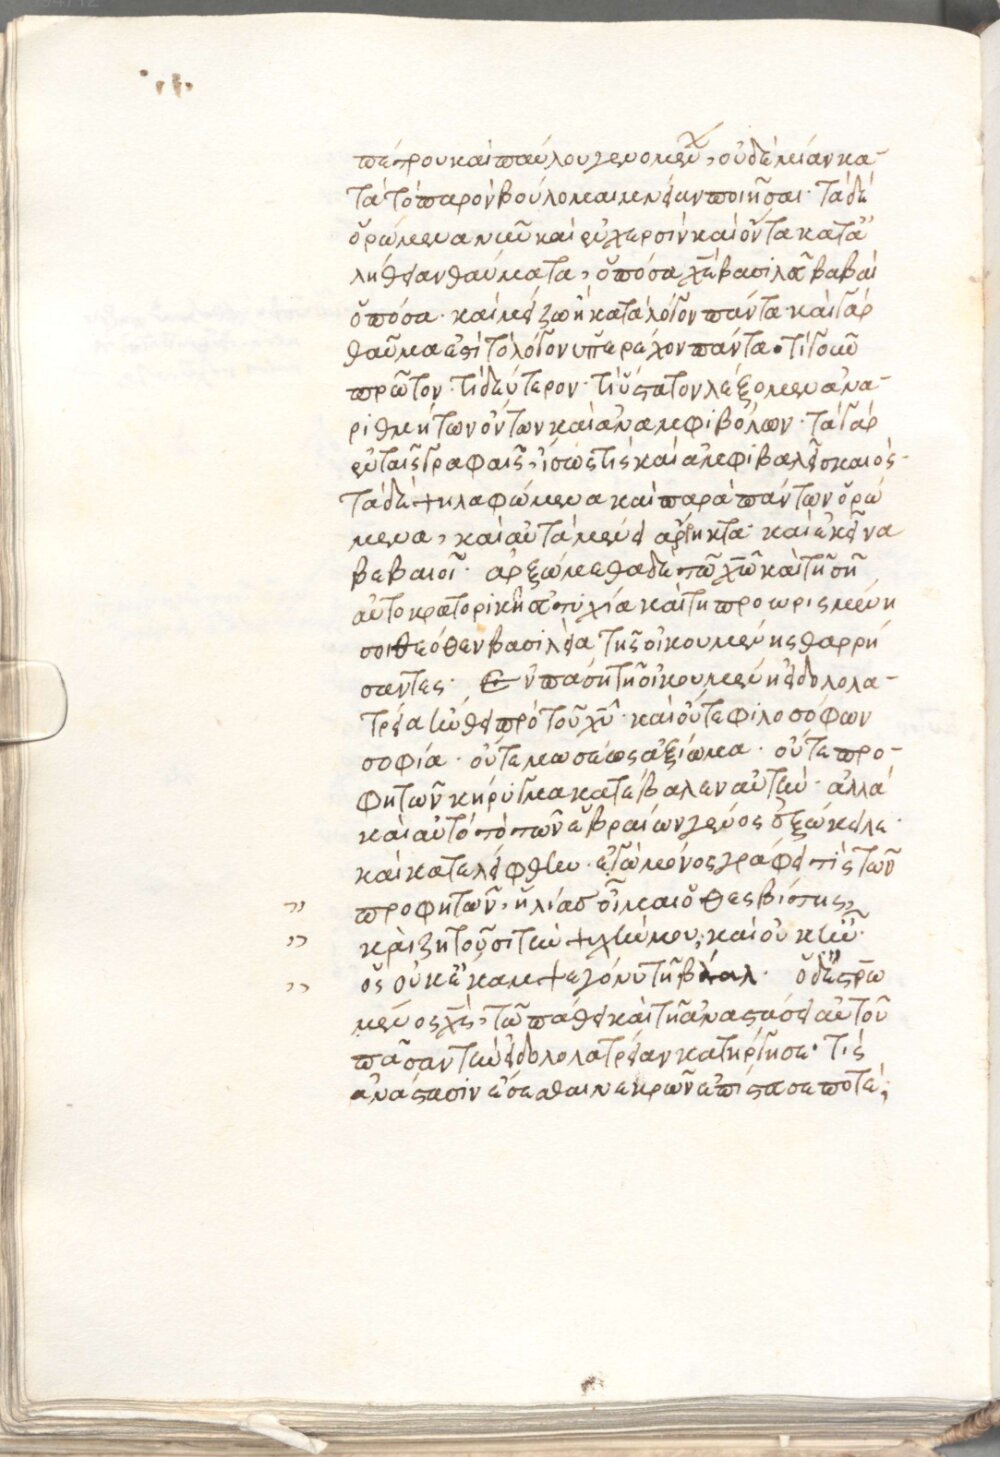 πέτρου καὶ παύλου γενομένων, οὐδεμίαν κα-
τὰ τὸ παρὸν βούλομαι μνείαν ποιῆσαι· τὰ δὲ
ὁρώμενα νῦν καὶ ἐν χερσὶν καὶ ὄντα κατὰ
λήθειαν θαύματα, ὁπόσα χε βασιλεῦ βαβαὶ
ὁπόσα· καὶ μείζω ἢ κατὰ λόγον πάντα· καὶ γὰρ
θαῦμα ἐπὶ τὸ λόγον ὑπερέχον πάντα· τί γοῦν
πρῶτον· τί δεύτερον· τί ὕστατον λέξομεν ἀνα-
ριθμήτων ὄντων καὶ ἀναμφιβόλων· τὰ γὰρ
ἐν ταῖς γραφαῖς, ἴσως τὶς καὶ ἀμφιβαλεῖ σκαιός·
τὰ δὲ ψηλαφώμενα καὶ παρὰ πάντων ὁρώ
μενα, καὶ αὐτὰ μένει ἄρρηκτα· καὶ ἐκεῖνα
βεβαιοῖ· ἀρξώμεθα δὲ τῶ χῶ καὶ τῆ σῆ
αὐτοκρατορικῆ εὐτυχία καὶ τῆ προωρισμένη
σοι θεόθεν βασιλεία τῆς οἰκουμένης θαρρή
σαντες· Ἐν πάση τῆ οἰκουμένη εἰδωλολα-
τρεία ἦν πρὸ τοῦ χυ· καὶ οὔτε φιλοσόφων
σοφία· οὔτε μωσέως ἀξίωμα· οὔτε προ-
φητῶν κήρυγμα κατέβαλεν αὐτήν· ἀλλὰ
καὶ αὐτὸ τὸ τῶν ἑβραίων γένος ἐξώκειλε·
καὶ κατελείφθην ἐγὼ μόνος γράφει τὶς τῶν
προφητῶν, ἠλίας οἶμαι ὁ θεσβίτης,
καὶ ζητοῦσι τὴν ψυχήν μου, καὶ οὐκ ἦν
ὃς οὐκ ἔκαμψε γόνυ τῆ βάαλ· ὁ δὲ ἐστρω
μένος χς, τῶ πάθει καὶ τῆ ἀναστάσει αὐτοῦ
πᾶσαν τὴν εἰδωλολατρείαν κατήργησε· τίς
ἀνάστασιν ἔσεσθαι νεκρῶν ἐπίστασε ποτέ;